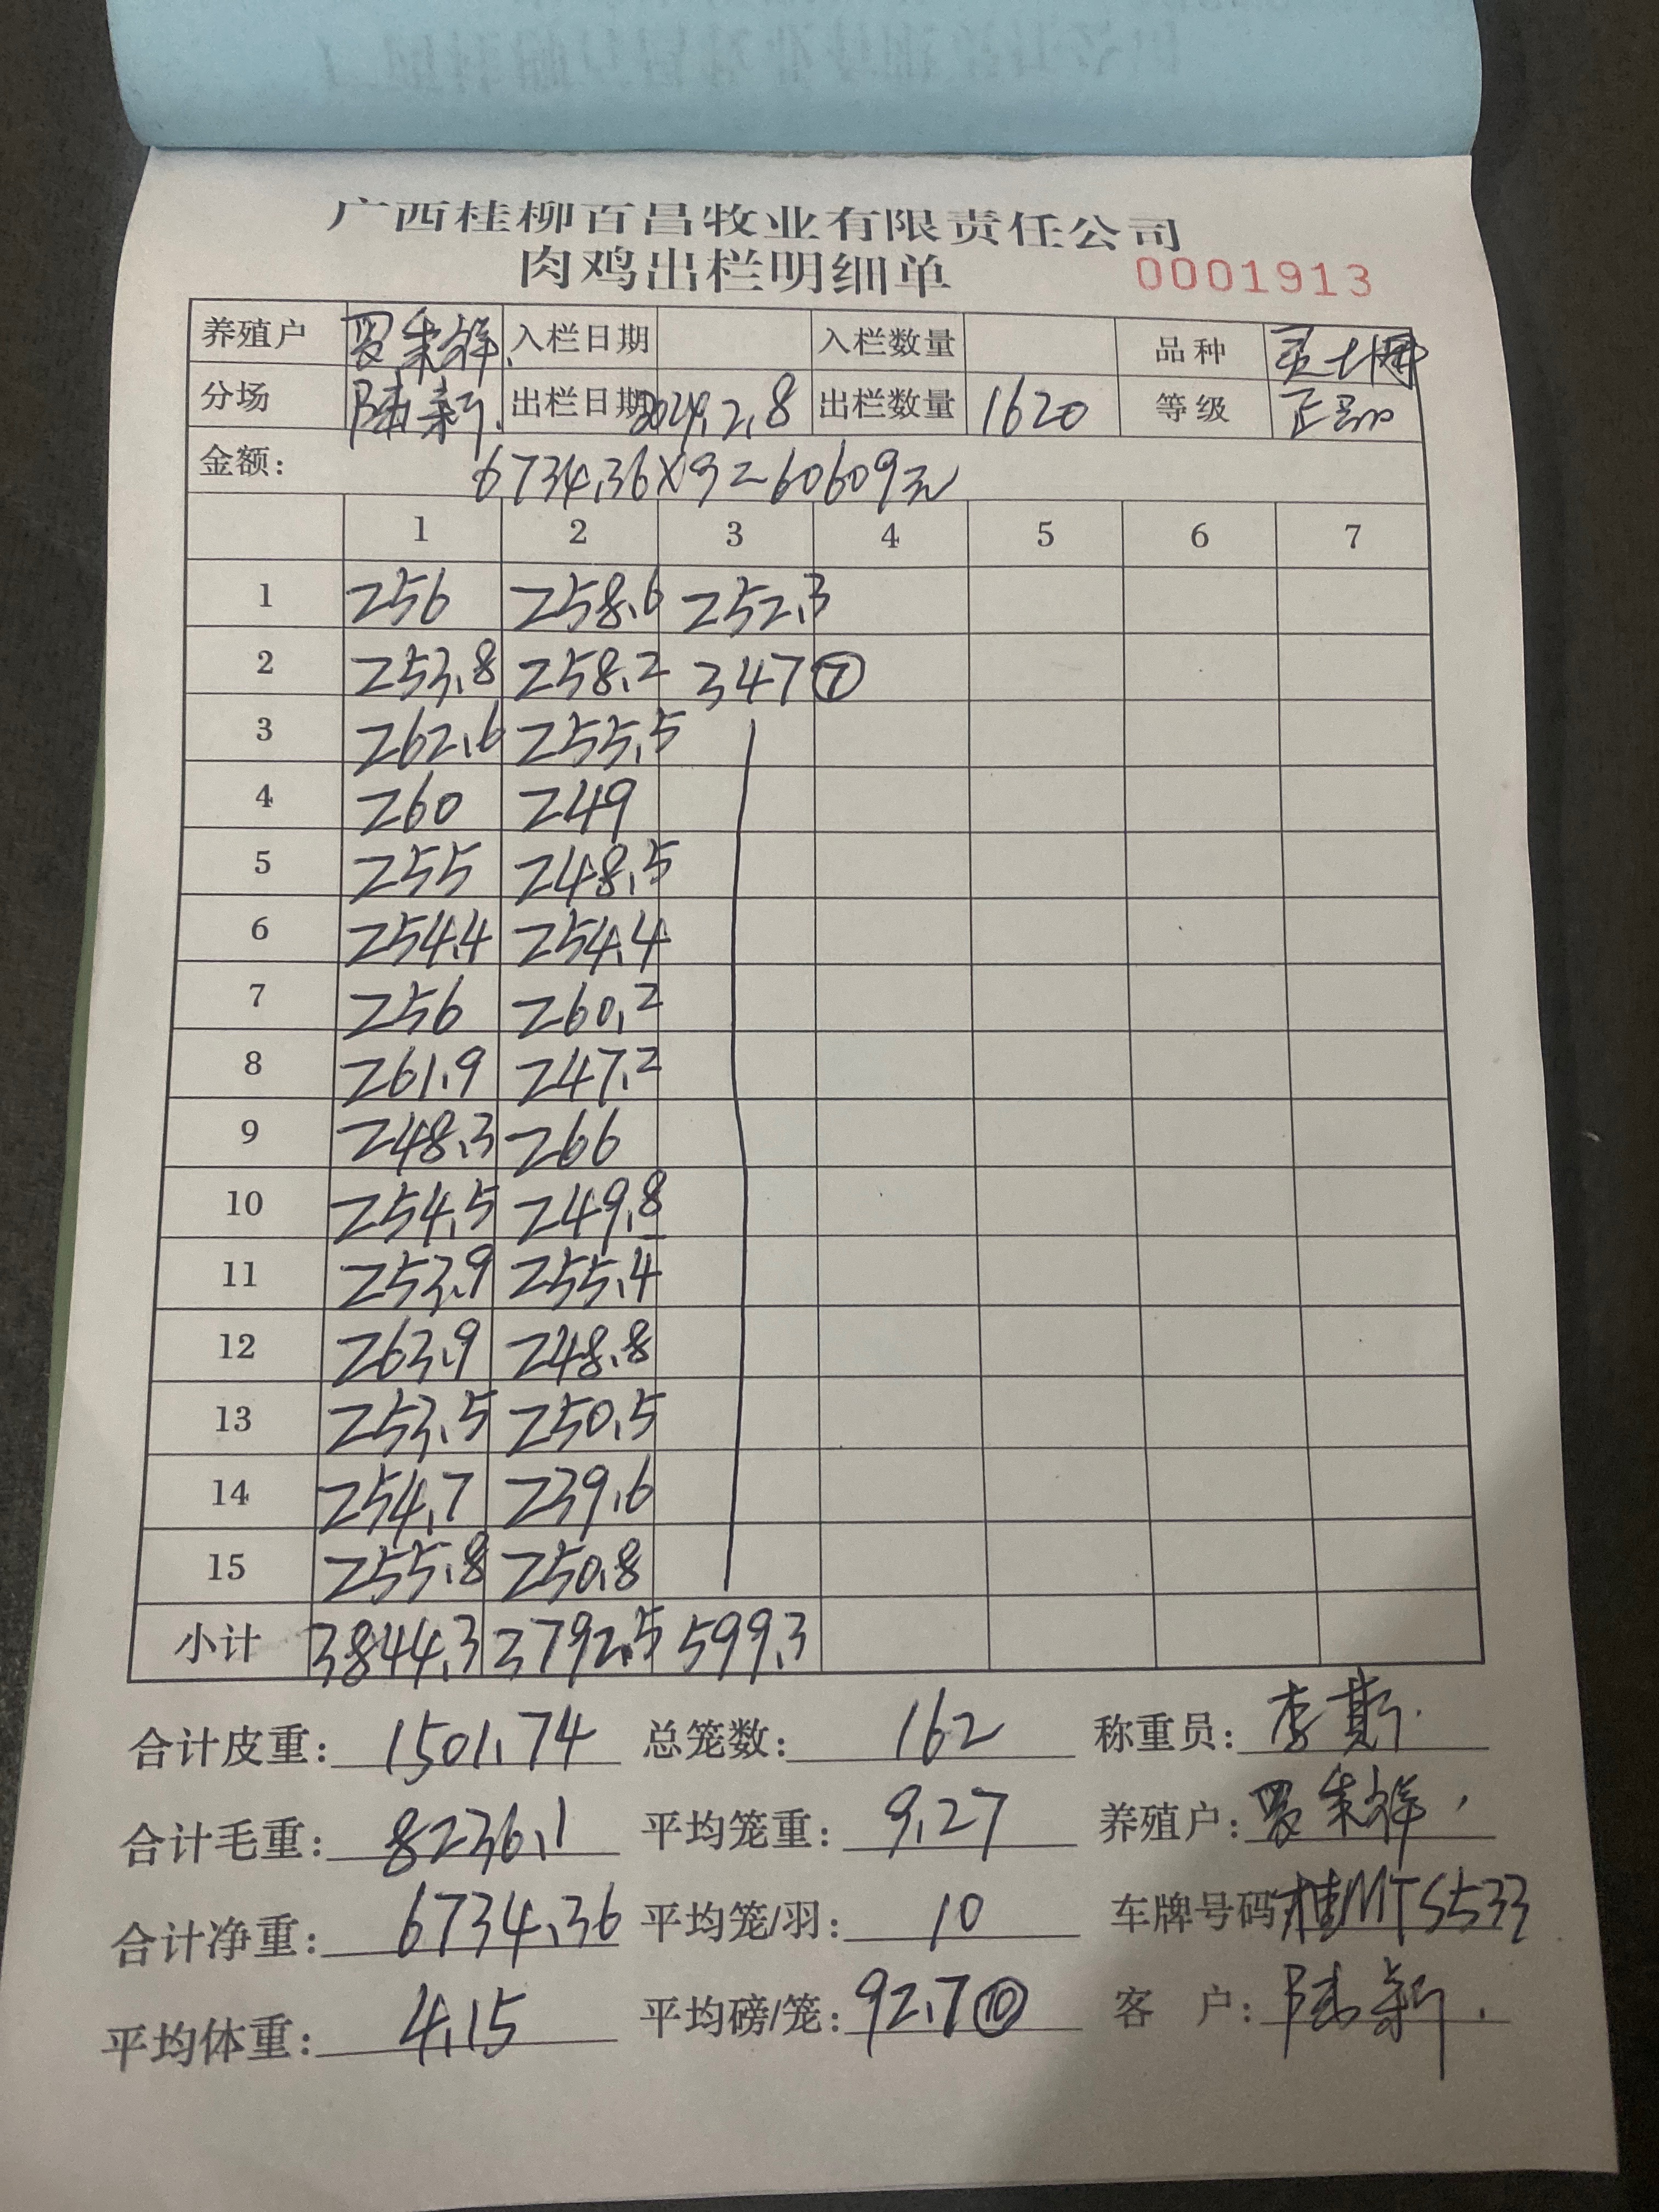 广西桂柳百昌牧业有限责任公司
肉鸡出栏明细单 0001913
养殖户 罗朱祥 入栏日期 入栏数量 品种
分场 陆新 出栏日期 2024.2.8 出栏数量 1620 等级 正品
金额: 6734.36×9=60609元
1 2 3 4 5 6 7
1 256 258.6 252.3
2 253.8 258.2 347 ⑦
3 262.6 255.5
4 260 249
5 255 248.5
6 254.4 254.4
7 256 260.2
8 261.9 247.2
9 248.3 266
10 254.5 249.8
11 253.9 255.4
12 263.9 248.8
13 253.5 250.5
14 254.7 239.6
15 255.8 250.8
小计 3844.3 3792.5 599.3
合计皮重: 1501.74 总笼数: 162 称重员: 李斯
合计毛重: 8236.1 平均笼重: 9.27 养殖户: 罗朱祥
合计净重: 6734.36 平均笼/羽: 10 车牌号码 桂MTS533
平均体重: 4.15 平均磅/笼: 92.7 ⑩ 客 户: 陆新